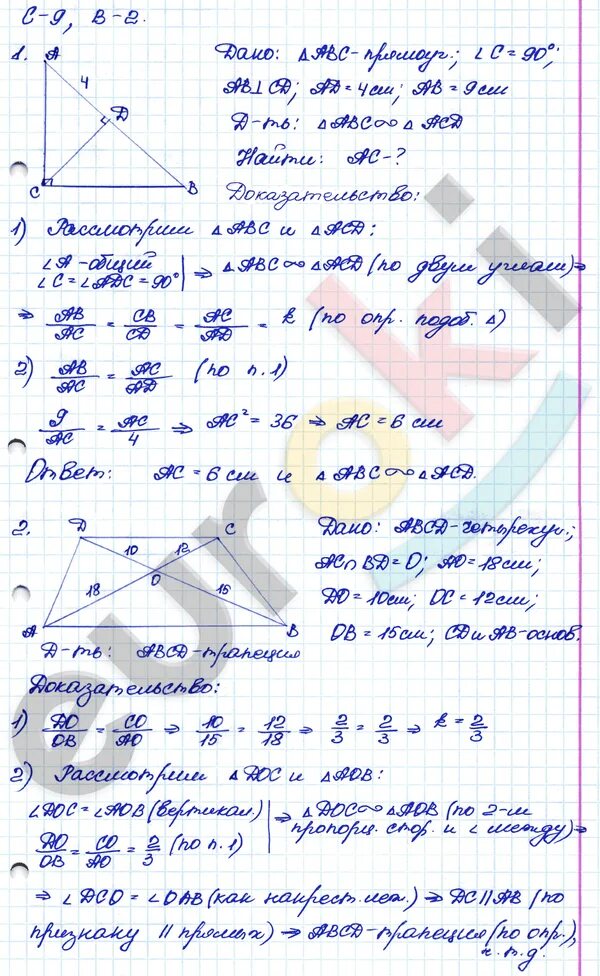 С-9, В-2.
1.
A
4
D
C
B
Дано: △ABC-прямоуг.; ∠C=90°;
AB⊥CD; AD=4см; AB=9см
Д-ть: △ABC∾△ACD
Найти: AC-?
Доказательство:
1) Рассмотрим △ABC и △ACD:
∠A-общий
∠C=∠ADC=90° | ⇒ △ABC∾△ACD (по двум углам)⇒
⇒ AB/AC = CB/CD = AC/AD = k (по опр. подоб. △)
2) AB/AC = AC/AD (по п.1)
9/AC = AC/4 ⇒ AC²=36 ⇒ AC=6см
Ответ: AC=6см и △ABC∾△ACD.
2.
D
C
10
12
O
18
15
A
B
Дано: ABCD-четырехуг.;
AC∩BD=O; AO=18см;
DO=10см; OC=12см;
OB=15см; CD и AB-основ.
Д-ть: ABCD-трапеция
Доказательство:
1) DO/OB = CO/AO ⇒ 10/15 = 12/18 ⇒ 2/3 = 2/3 ⇒ k=2/3
2) Рассмотрим △DOC и △AOB:
∠DOC=∠AOB (вертикал.)
DO/OB = CO/AO = 2/3 (по п.1) | ⇒ △DOC∾△AOB (по 2-м
пропорц. стор. и ∠ между)⇒
⇒ ∠DCO=∠OAB (как накрест леж.) ⇒ DC∥AB (по
признаку ∥ прямых) ⇒ ABCD-трапеция (по опр.),
ч.т.д.
euroki